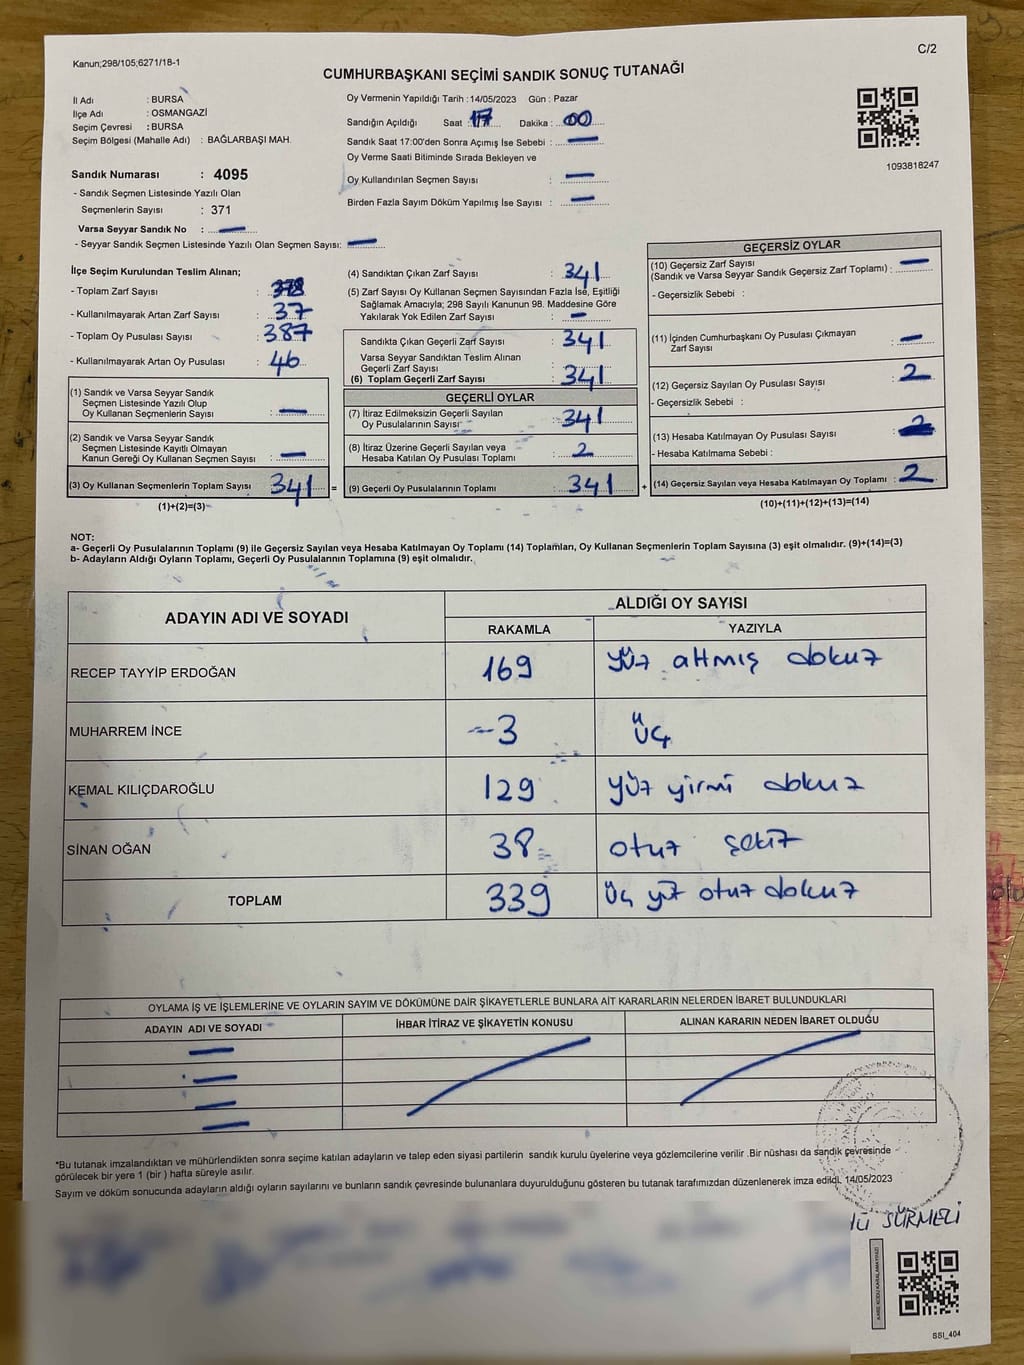 Kanun;298/105;6271/18-1
C/2
CUMHURBAŞKANI SEÇİMİ SANDIK SONUÇ TUTANAĞI
İl Adı : BURSA
İlçe Adı : OSMANGAZİ
Seçim Çevresi : BURSA
Seçim Bölgesi (Mahalle Adı) : BAĞLARBAŞI MAH.
Oy Vermenin Yapıldığı Tarih : 14/05/2023 Gün : Pazar
Sandığın Açıldığı Saat : 17 Dakika : 00
Sandık Saat 17:00'den Sonra Açımış İse Sebebi : —
Oy Verme Saati Bitiminde Sırada Bekleyen ve
Oy Kullandırılan Seçmen Sayısı : —
Birden Fazla Sayım Döküm Yapılmış İse Sayısı : —
1093818247
Sandık Numarası : 4095
- Sandık Seçmen Listesinde Yazılı Olan
Seçmenlerin Sayısı : 371
Varsa Seyyar Sandık No : —
- Seyyar Sandık Seçmen Listesinde Yazılı Olan Seçmen Sayısı: —
İlçe Seçim Kurulundan Teslim Alınan;
- Toplam Zarf Sayısı : 378
- Kullanılmayarak Artan Zarf Sayısı : 37
- Toplam Oy Pusulası Sayısı : 387
- Kullanılmayarak Artan Oy Pusulası : 46
(1) Sandık ve Varsa Seyyar Sandık
Seçmen Listesinde Yazılı Olup
Oy Kullanan Seçmenlerin Sayısı : —
(2) Sandık ve Varsa Seyyar Sandık
Seçmen Listesinde Kayıtlı Olmayan
Kanun Gereği Oy Kullanan Seçmen Sayısı : —
(3) Oy Kullanan Seçmenlerin Toplam Sayısı : 341
(1)+(2)=(3)
(4) Sandıktan Çıkan Zarf Sayısı : 341
(5) Zarf Sayısı Oy Kullanan Seçmen Sayısından Fazla İse, Eşitliği
Sağlamak Amacıyla; 298 Sayılı Kanunun 98. Maddesine Göre
Yakılarak Yok Edilen Zarf Sayısı : —
Sandıkta Çıkan Geçerli Zarf Sayısı : 341
Varsa Seyyar Sandıktan Teslim Alınan
Geçerli Zarf Sayısı :
(6) Toplam Geçerli Zarf Sayısı : 341
GEÇERLİ OYLAR
(7) İtiraz Edilmeksizin Geçerli Sayılan
Oy Pusulalarının Sayısı : 341
(8) İtiraz Üzerine Geçerli Sayılan veya
Hesaba Katılan Oy Pusulası Toplamı : 2
= (9) Geçerli Oy Pusulalarının Toplamı : 341 +
GEÇERSİZ OYLAR
(10) Geçersiz Zarf Sayısı
(Sandık ve Varsa Seyyar Sandık Geçersiz Zarf Toplamı) : —
- Geçersizlik Sebebi :
(11) İçinden Cumhurbaşkanı Oy Pusulası Çıkmayan
Zarf Sayısı : —
(12) Geçersiz Sayılan Oy Pusulası Sayısı : 2
- Geçersizlik Sebebi :
(13) Hesaba Katılmayan Oy Pusulası Sayısı :
- Hesaba Katılmama Sebebi :
(14) Geçersiz Sayılan veya Hesaba Katılmayan Oy Toplamı : 2
(10)+(11)+(12)+(13)=(14)
NOT:
a- Geçerli Oy Pusulalarının Toplamı (9) ile Geçersiz Sayılan veya Hesaba Katılmayan Oy Toplamı (14) Toplamları, Oy Kullanan Seçmenlerin Toplam Sayısına (3) eşit olmalıdır. (9)+(14)=(3)
b- Adayların Aldığı Oyların Toplamı, Geçerli Oy Pusulalarının Toplamına (9) eşit olmalıdır.
ADAYIN ADI VE SOYADI ALDIĞI OY SAYISI
RAKAMLA YAZIYLA
RECEP TAYYİP ERDOĞAN 169 yüz altmış dokuz
MUHARREM İNCE 3 üç
KEMAL KILIÇDAROĞLU 129 yüz yirmi dokuz
SİNAN OĞAN 38 otuz şekiz
TOPLAM 339 üç yüz otuz dokuz
OYLAMA İŞ VE İŞLEMLERİNE VE OYLARIN SAYIM VE DÖKÜMÜNE DAİR ŞİKAYETLERLE BUNLARA AİT KARARLARIN NELERDEN İBARET BULUNDUKLARI
ADAYIN ADI VE SOYADI İHBAR İTİRAZ VE ŞİKAYETİN KONUSU ALINAN KARARIN NEDEN İBARET OLDUĞU
*Bu tutanak imzalandıktan ve mühürlendikten sonra seçime katılan adayların ve talep eden siyasi partilerin sandık kurulu üyelerine veya gözlemcilerine verilir .Bir nüshası da sandık çevresinde
görülecek bir yere 1 (bir ) hafta süreyle asılır.
Sayım ve döküm sonucunda adayların aldığı oyların sayılarını ve bunların sandık çevresinde bulunanlara duyurulduğunu gösteren bu tutanak tarafımızdan düzenlenerek imza edildi. 14/05/2023
SÜRMELİ
KARE KODU KARALAMAYINIZ!
SSI_404